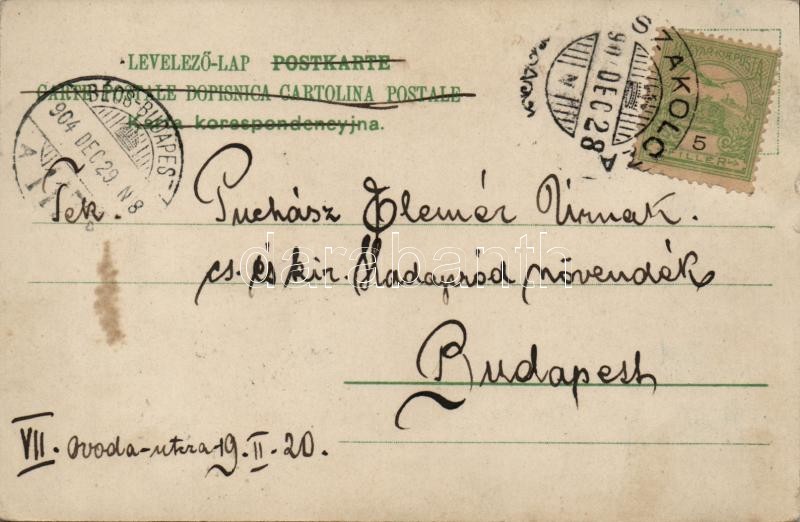 LEVELEZŐ-LAP POSTKARTE
CARTE POSTALE DOPISNICA CARTOLINA POSTALE
Karta korespondencyjna.
BPOS-BUDAPES-
904 DEC 29. N 8
A
SZAKOLCZA
90 DEC 28
N
5
FILLER
Tek. Puchász Elemér Úrnak.
cs. és kir. Hadapród növendék
Budapest
VII. Ovoda-utcza 19. II. 20.
darabanth